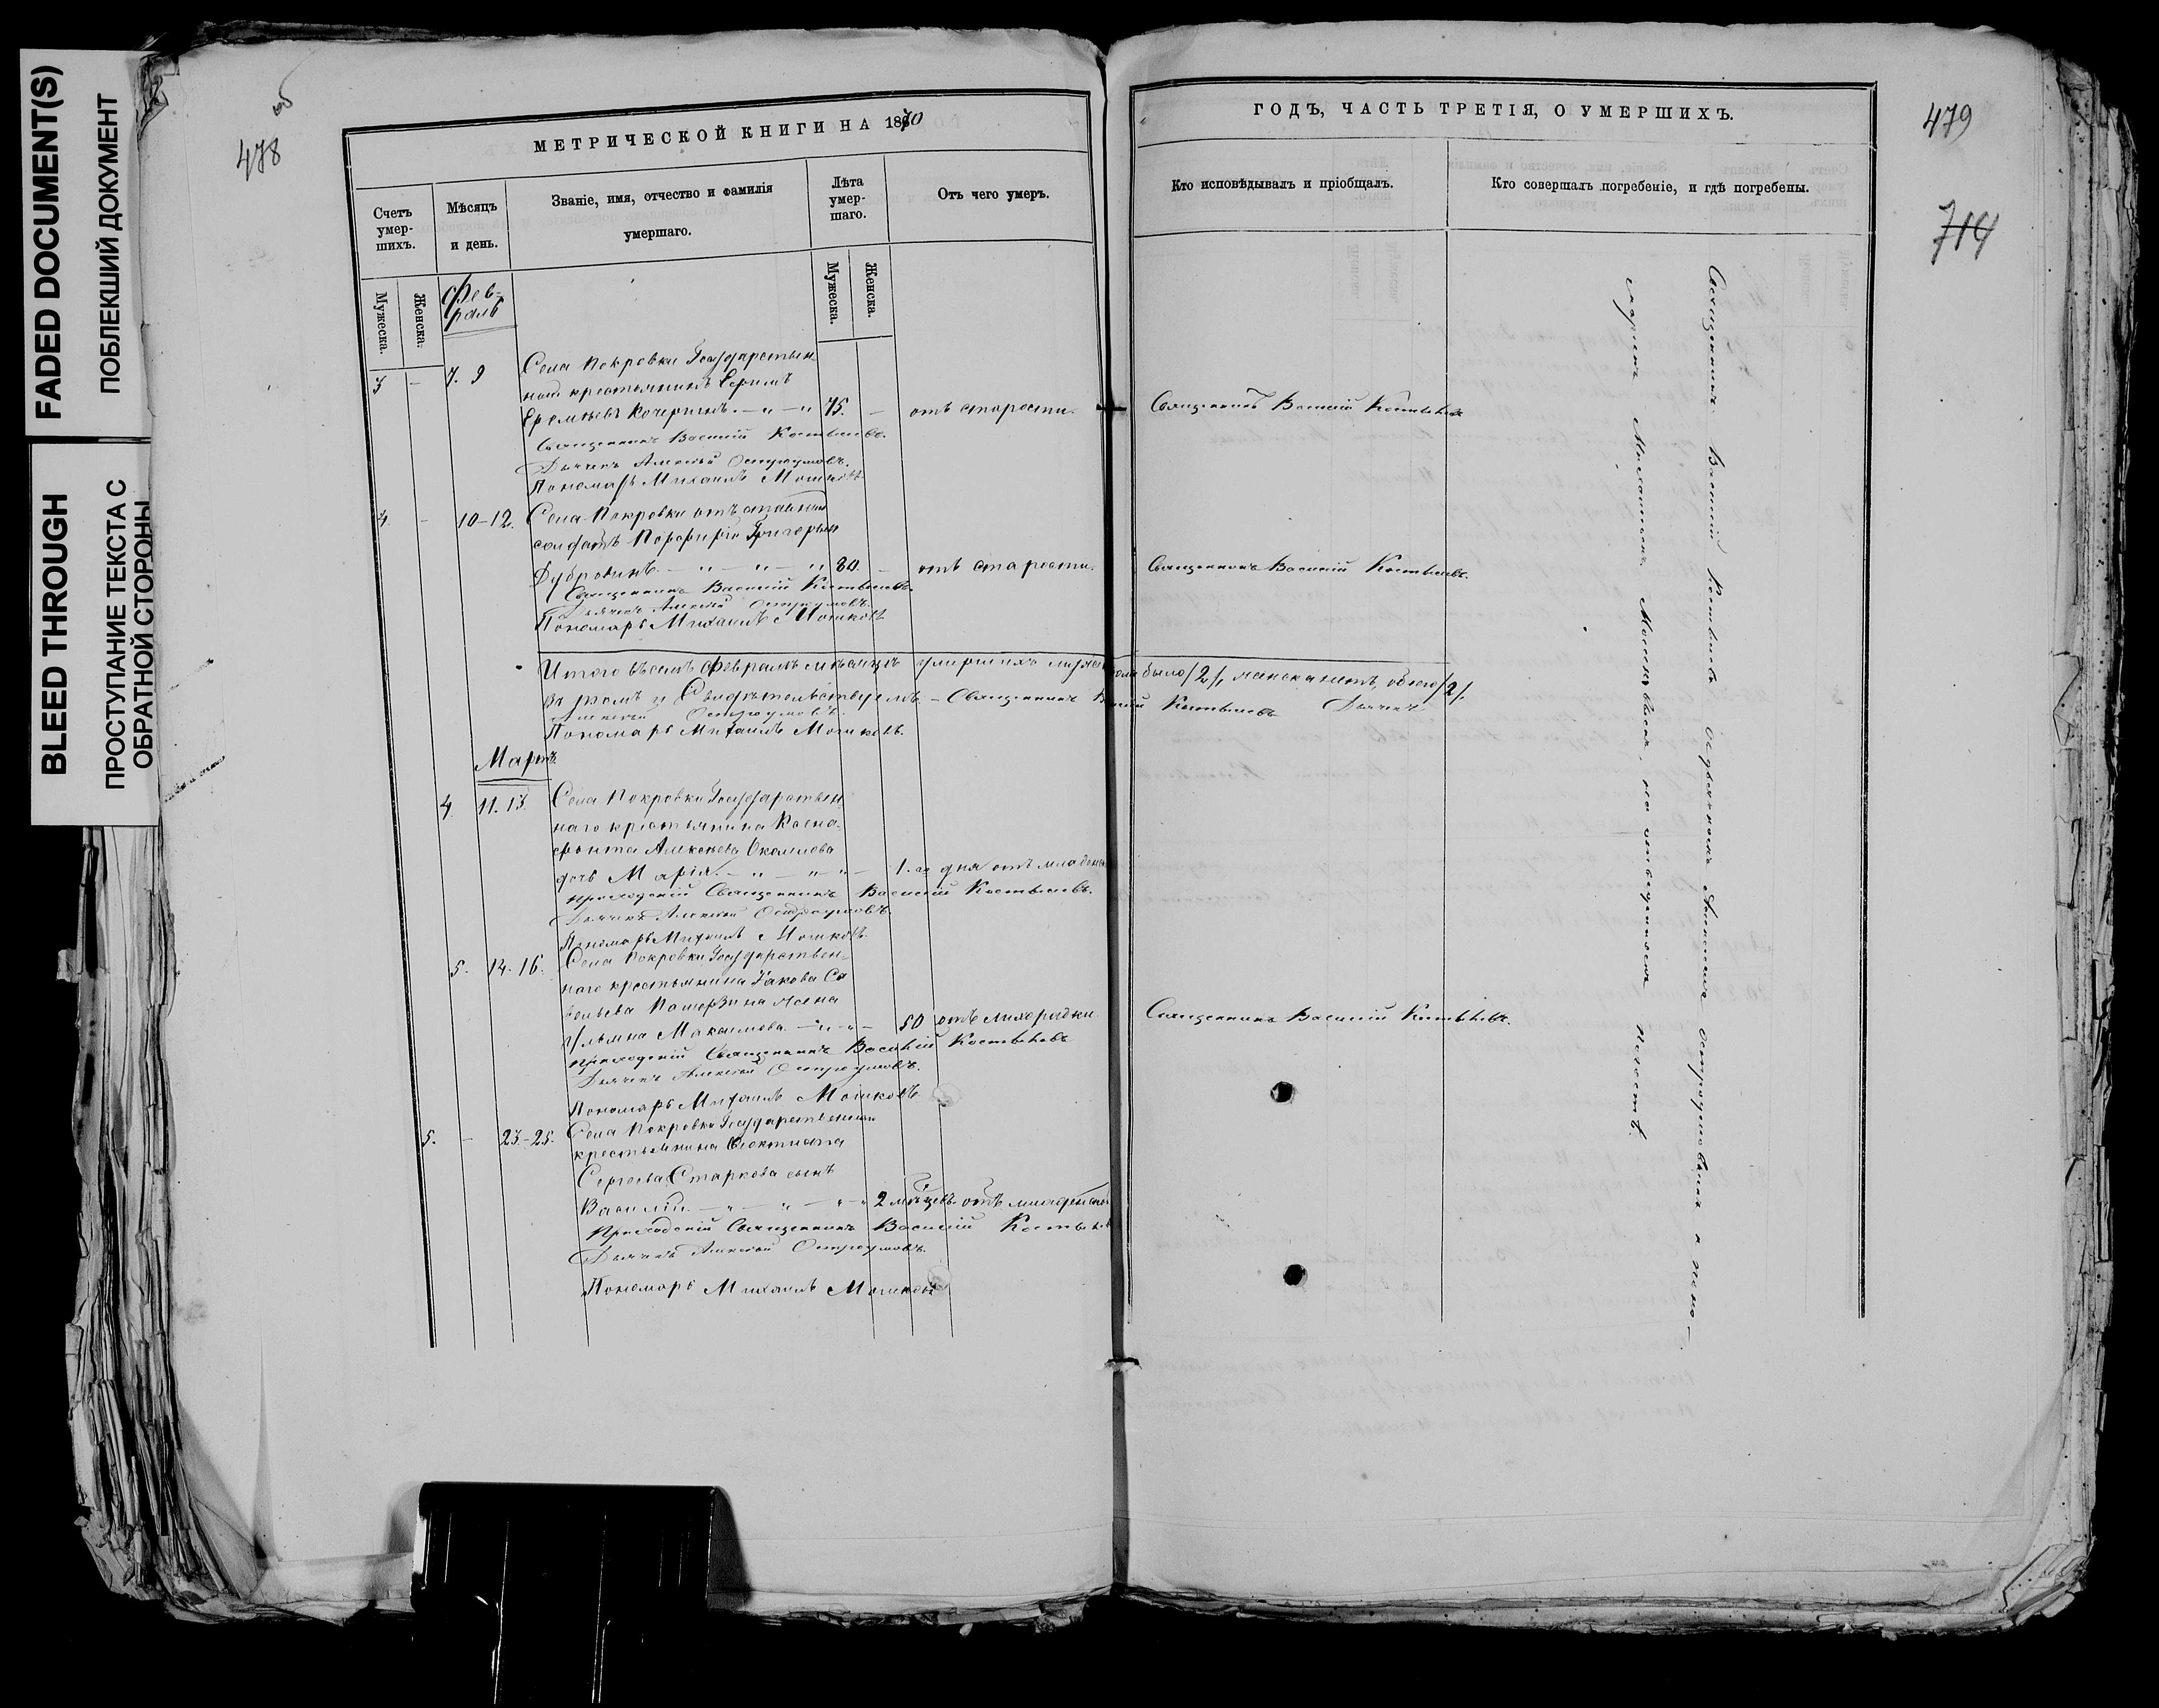 FADED DOCUMENT(S)
ПОБЛЕКШИЙ ДОКУМЕНТ
BLEED THROUGH
ПРОСТУПАНИЕ ТЕКСТА С
ОБРАТНОЙ СТОРОНЫ
об
478
МЕТРИЧЕСКОЙ КНИГИ НА 1870
Счетъ умер-шихъ.
Мѣсяцъ и день.
Званіе, имя, отчество и фамилія умершаго.
Лѣта умер-шаго.
Отъ чего умеръ.
Мужеска.
Женска.
Мужеска.
Женска.
Фев-
раль
3 – 7. 9 Села Покровки Государствен
ной крестьянинъ Ефимъ
Еремѣевъ Кочергинъ. – „ – „ 75. – отъ старости.
Священникъ Василій Костылевъ.
Дьячекъ Алексѣй Остроумовъ.
Пономарь Михаилъ Мошковъ
4 – 10–12. Села Покровки отъставный
солдатъ Порфирій Григорьевъ
Дубровинъ. – „ – „ – „ 80. – отъ старости.
Священникъ Василій Костылевъ.
Дьячекъ Алексѣй Остроумовъ.
Пономарь Михаилъ Мошковъ
Итого въ семъ Февралѣ мѣсяцѣ умершихъ мужеска пола было /2/, женска нѣтъ, обоего /2/.
Въ томъ и Свидѣтельствуемъ – Священникъ Василій Костылевъ Дьячекъ
Алексѣй Остроумовъ.
Пономарь Михаилъ Мошковъ.
Мартъ
4. 11. 13. Села Покровки Государствен
наго крестьянина Ксено-
фонта Алексѣева
дочь Марія. – „ – „ „ – дня отъ младенч
Приходскій Священникъ Василій Костылевъ.
Дьячекъ Алексѣй Остроумовъ.
Пономарь Михаилъ Мошковъ.
5. 14. 16. Села Покровки Государствен-
наго крестьянина Якова Са
вельева жена
Ульяна Максимова – „ – „ – 50 отъ лихорадки
Приходскій Священникъ Василій Костылевъ
Дьячекъ Алексѣй Остроумовъ.
Пономарь Михаилъ Мошковъ
5. – 23.–25. Села Покровки Государственнаго
крестьянина
Сергѣева Старкова сынъ
Василій. – „ – „ – „ 2 мѣсяцевъ отъ младенческой
Приходскій Священникъ Василій Костылевъ
Дьячекъ Алексѣй Остроумовъ.
Пономарь Михаилъ Мошковъ
479
714
ГОДЪ, ЧАСТЬ ТРЕТІЯ, О УМЕРШИХЪ.
Кто исповѣдывалъ и пріобщалъ.
Кто совершалъ погребеніе, и гдѣ погребены.
Священникъ Василій Костылевъ
Священникъ Василій Костылевъ.
Священникъ Василій Костылевъ.
Священникъ Василій Костылевъ съ дьячкомъ Алексѣемъ Остроумовымъ и поно-
маремъ Михаиломъ на отведенномъ